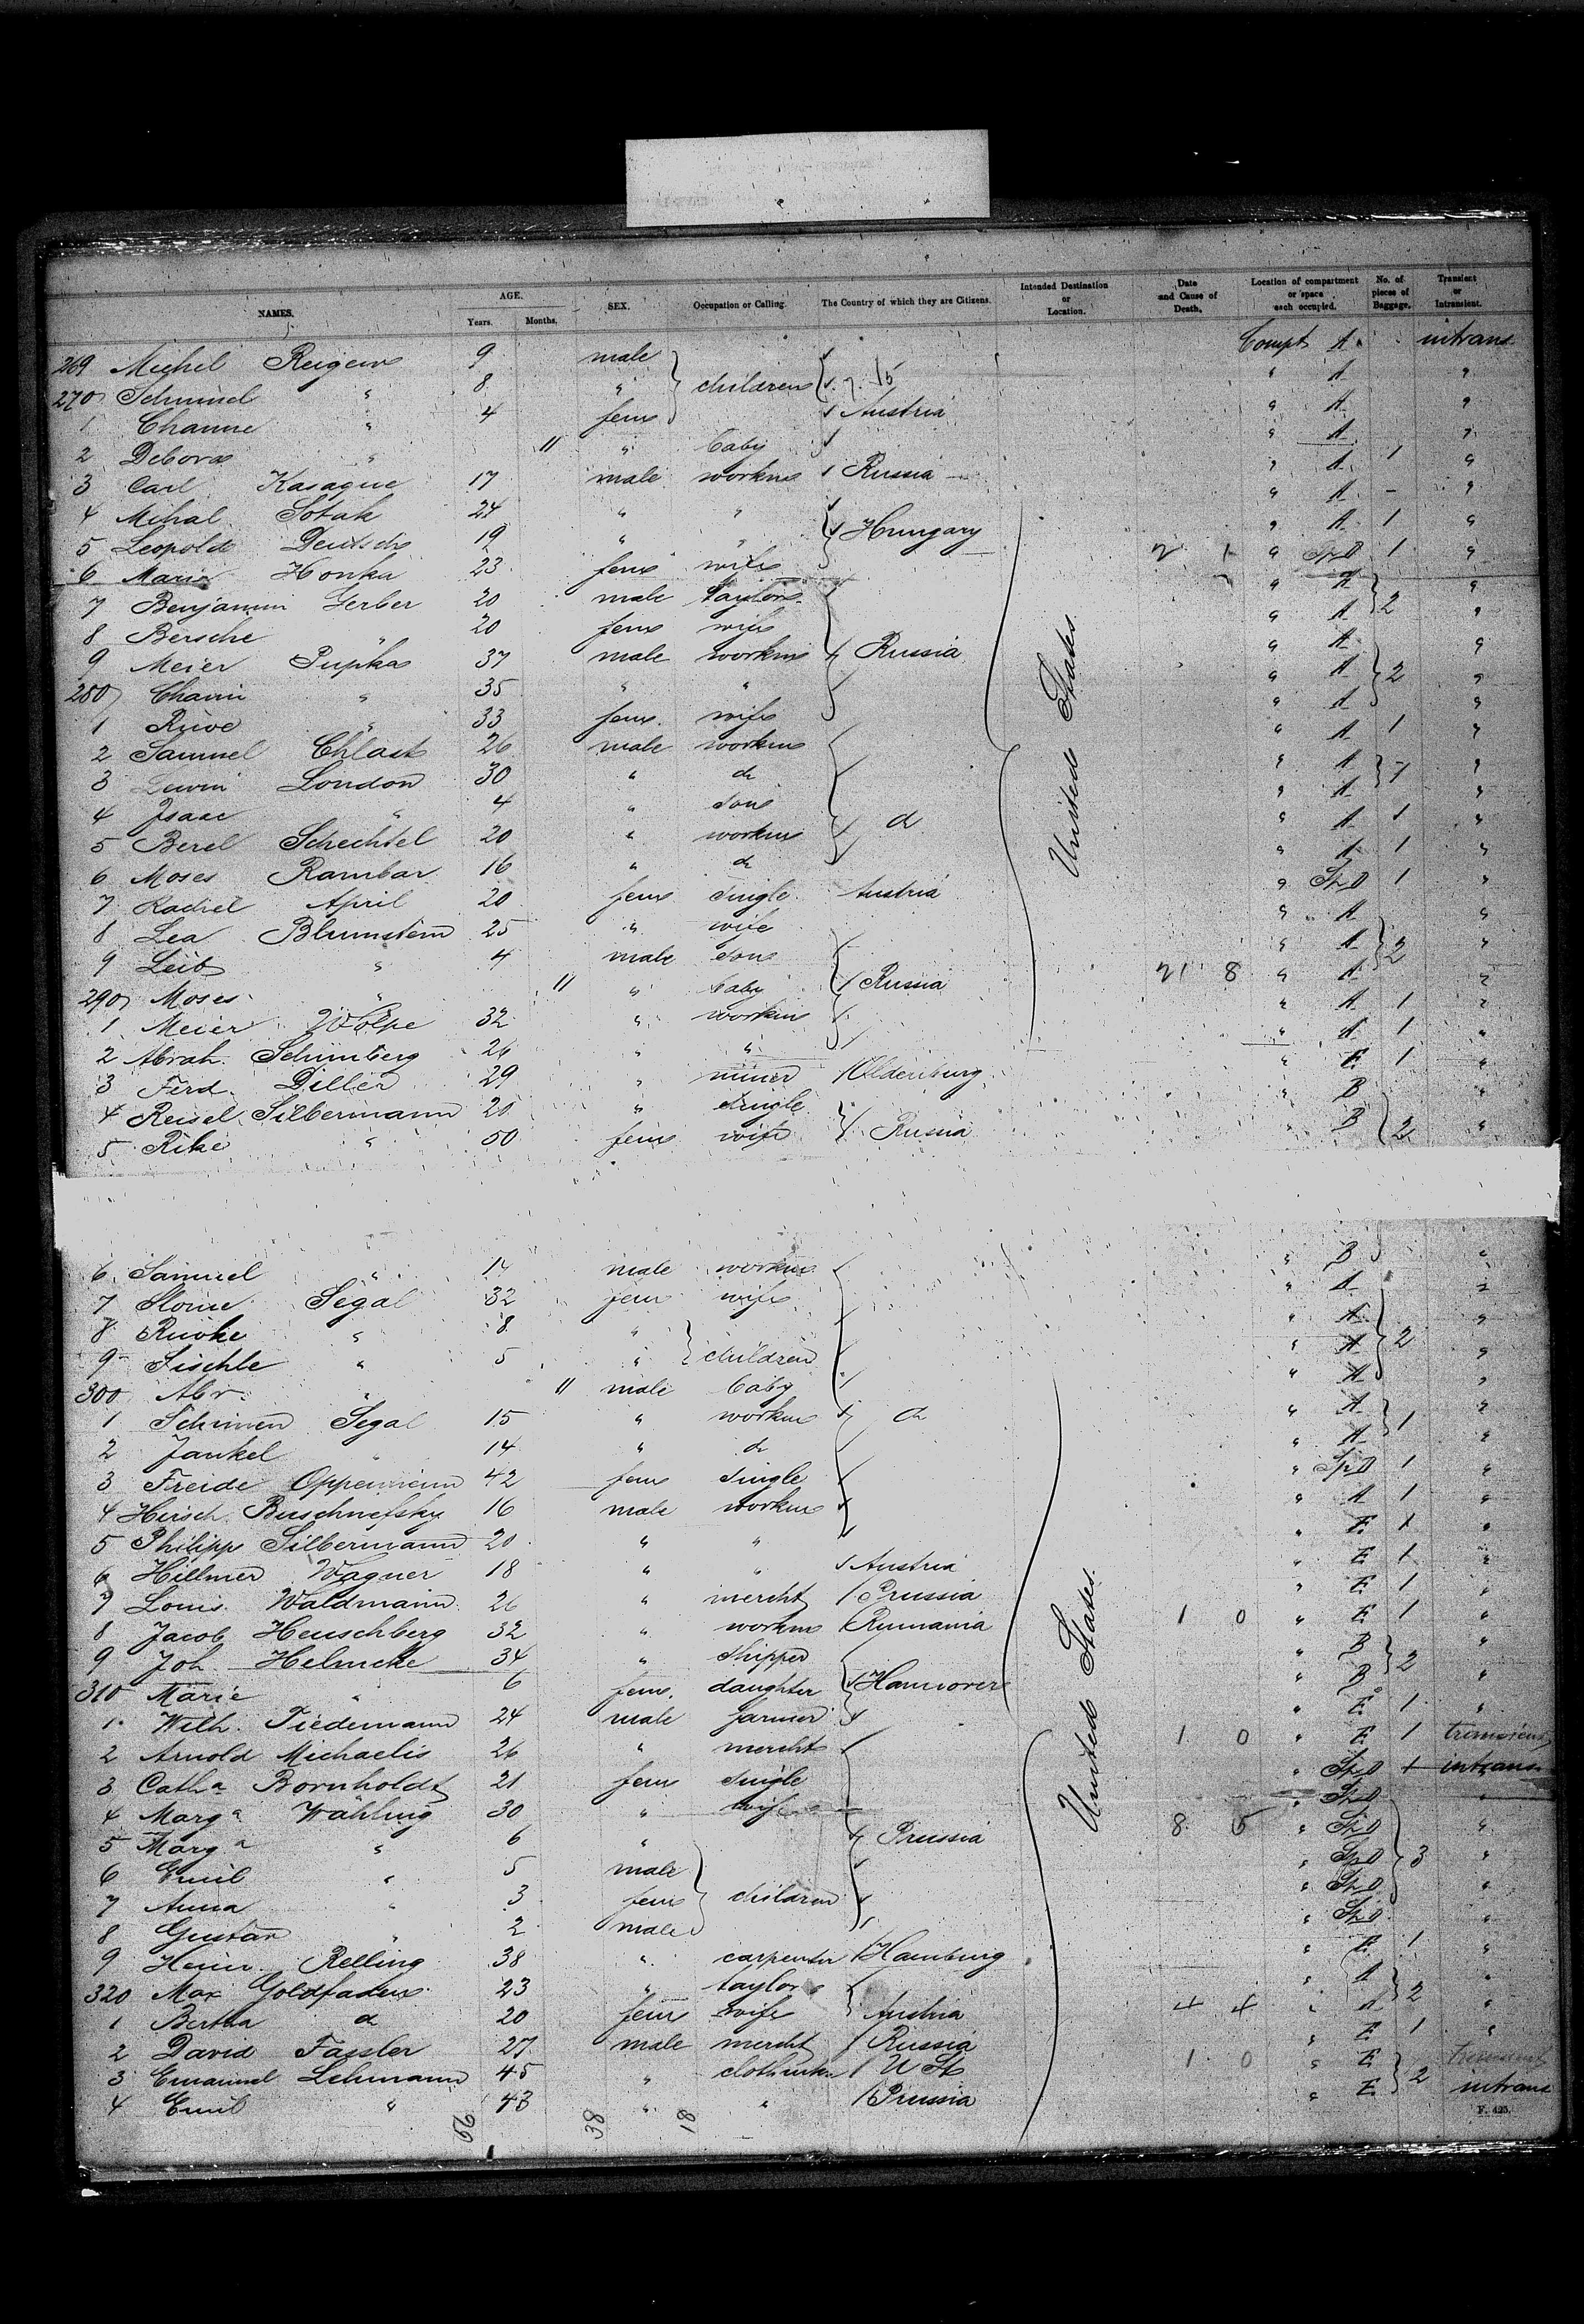 NAMES. AGE. Years. Months. SEX. Occupation or Calling. The Country of which they are Citizens. Intended Destination or Location. Date and Cause of Death. Location of compartment or space each occupied. No. of pieces of Baggage. Transient or Intransient.
269 Michel 9 male Compt A intrans
270 " 8 " children A "
1 " 4 fem Austria " A "
2 Debora " 11 " baby " A "
3 Carl 17 male workm Russia " A 1 "
4 Mihal Sotak 24 " " " A - "
5 Leopold Deutsch 19 " " Hungary " A 1 "
6 Maria Honka 23 fem wife 2 1 " Sp D 1 "
7 Benjamin Gerber 20 male taylor " A "
8 Bersche " 20 fem wife " A 2 "
9 Meier Pupka 37 male workm Russia " A "
280 " 35 " " " A 2 "
1 " 33 fem wife " A "
2 Samuel Chlast 26 male workm " A 1 "
3 London 30 " do " A "
4 Isaac " 4 " son " A "
5 Berel Schechtel 20 " workm do " A 1 "
6 Moses Rambar 16 " do " A 1 "
7 Rachel April 20 fem single Austria " Sp D 1 "
8 Lea Blumstein 25 " wife " A "
9 Leib " 4 male son " A 2 "
290 Moses " 11 " baby Russia 21 8 " A "
1 Meier Wolpe 32 " workm " A 1 "
2 Abrah. 26 " " " A 1 "
3 Ferd. Diller 29 " miner Oldenburg " E 1 "
4 Reisel Silbermann 20 " single " B "
5 Rike " 50 fem wife Russia B 2 "
United States.
6 Samuel " 14 male workm " B "
7 Segal 32 fem wife " A "
8 " 8 " " A "
9 " 5 " children " A 2 "
300 Abr. " 11 male baby " A "
1 Schimen Segal 15 " workm do " A 1 "
2 Jankel " 14 " do " A "
3 Freide 42 fem single " Sp D 1 "
4 Hirsch 16 male workm " A 1 "
5 Philipp Silbermann 20 " " " E 1 "
6 Hillmer Wagner 18 " " Austria " E 1 "
7 Louis Waldmann 26 " mercht Prussia " E 1 "
8 Jacob Henschberg 32 " workm Rumania 1 0 " E 1 "
9 Joh. Helmcke 34 " shipper " B "
310 Marie " 6 fem. daughter Hannover " B 2 "
1 Wilh. Tiedemann 24 male farmer " E 1 "
2 Arnold Michaelis 26 " mercht 1 0 " E 1
3 Catha Bornholdt 21 fem single " Sp D 1 intrans
4 Marga Wähling 30 " wife " Sp D "
5 Marga " 6 " Prussia 8 5 " Sp D "
6 Emil " 5 male " Sp D 3 "
7 Anna " 3 fem children " Sp D "
8 Gustav " 2 male " Sp D "
9 Heinr. Relling 38 " carpenter Hamburg " E 1 "
320 Max Goldfaden 23 " taylor " A "
1 Bertha do 20 fem wife Austria 4 4 " A 2 "
2 David Fassler 27 male mercht Russia " E 1 "
3 Emanuel Lehmann 45 " U St 1 0 " E
4 Emil " 43 " " Prussia " E 2 intrans
United States.
56 38 18
F. 425.